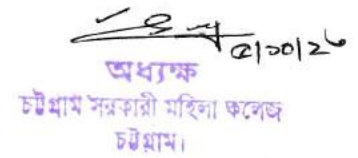 ৫/১০/২৬
অধ্যক্ষ
চট্টগ্রাম সরকারী মহিলা কলেজ
চট্টগ্রাম।